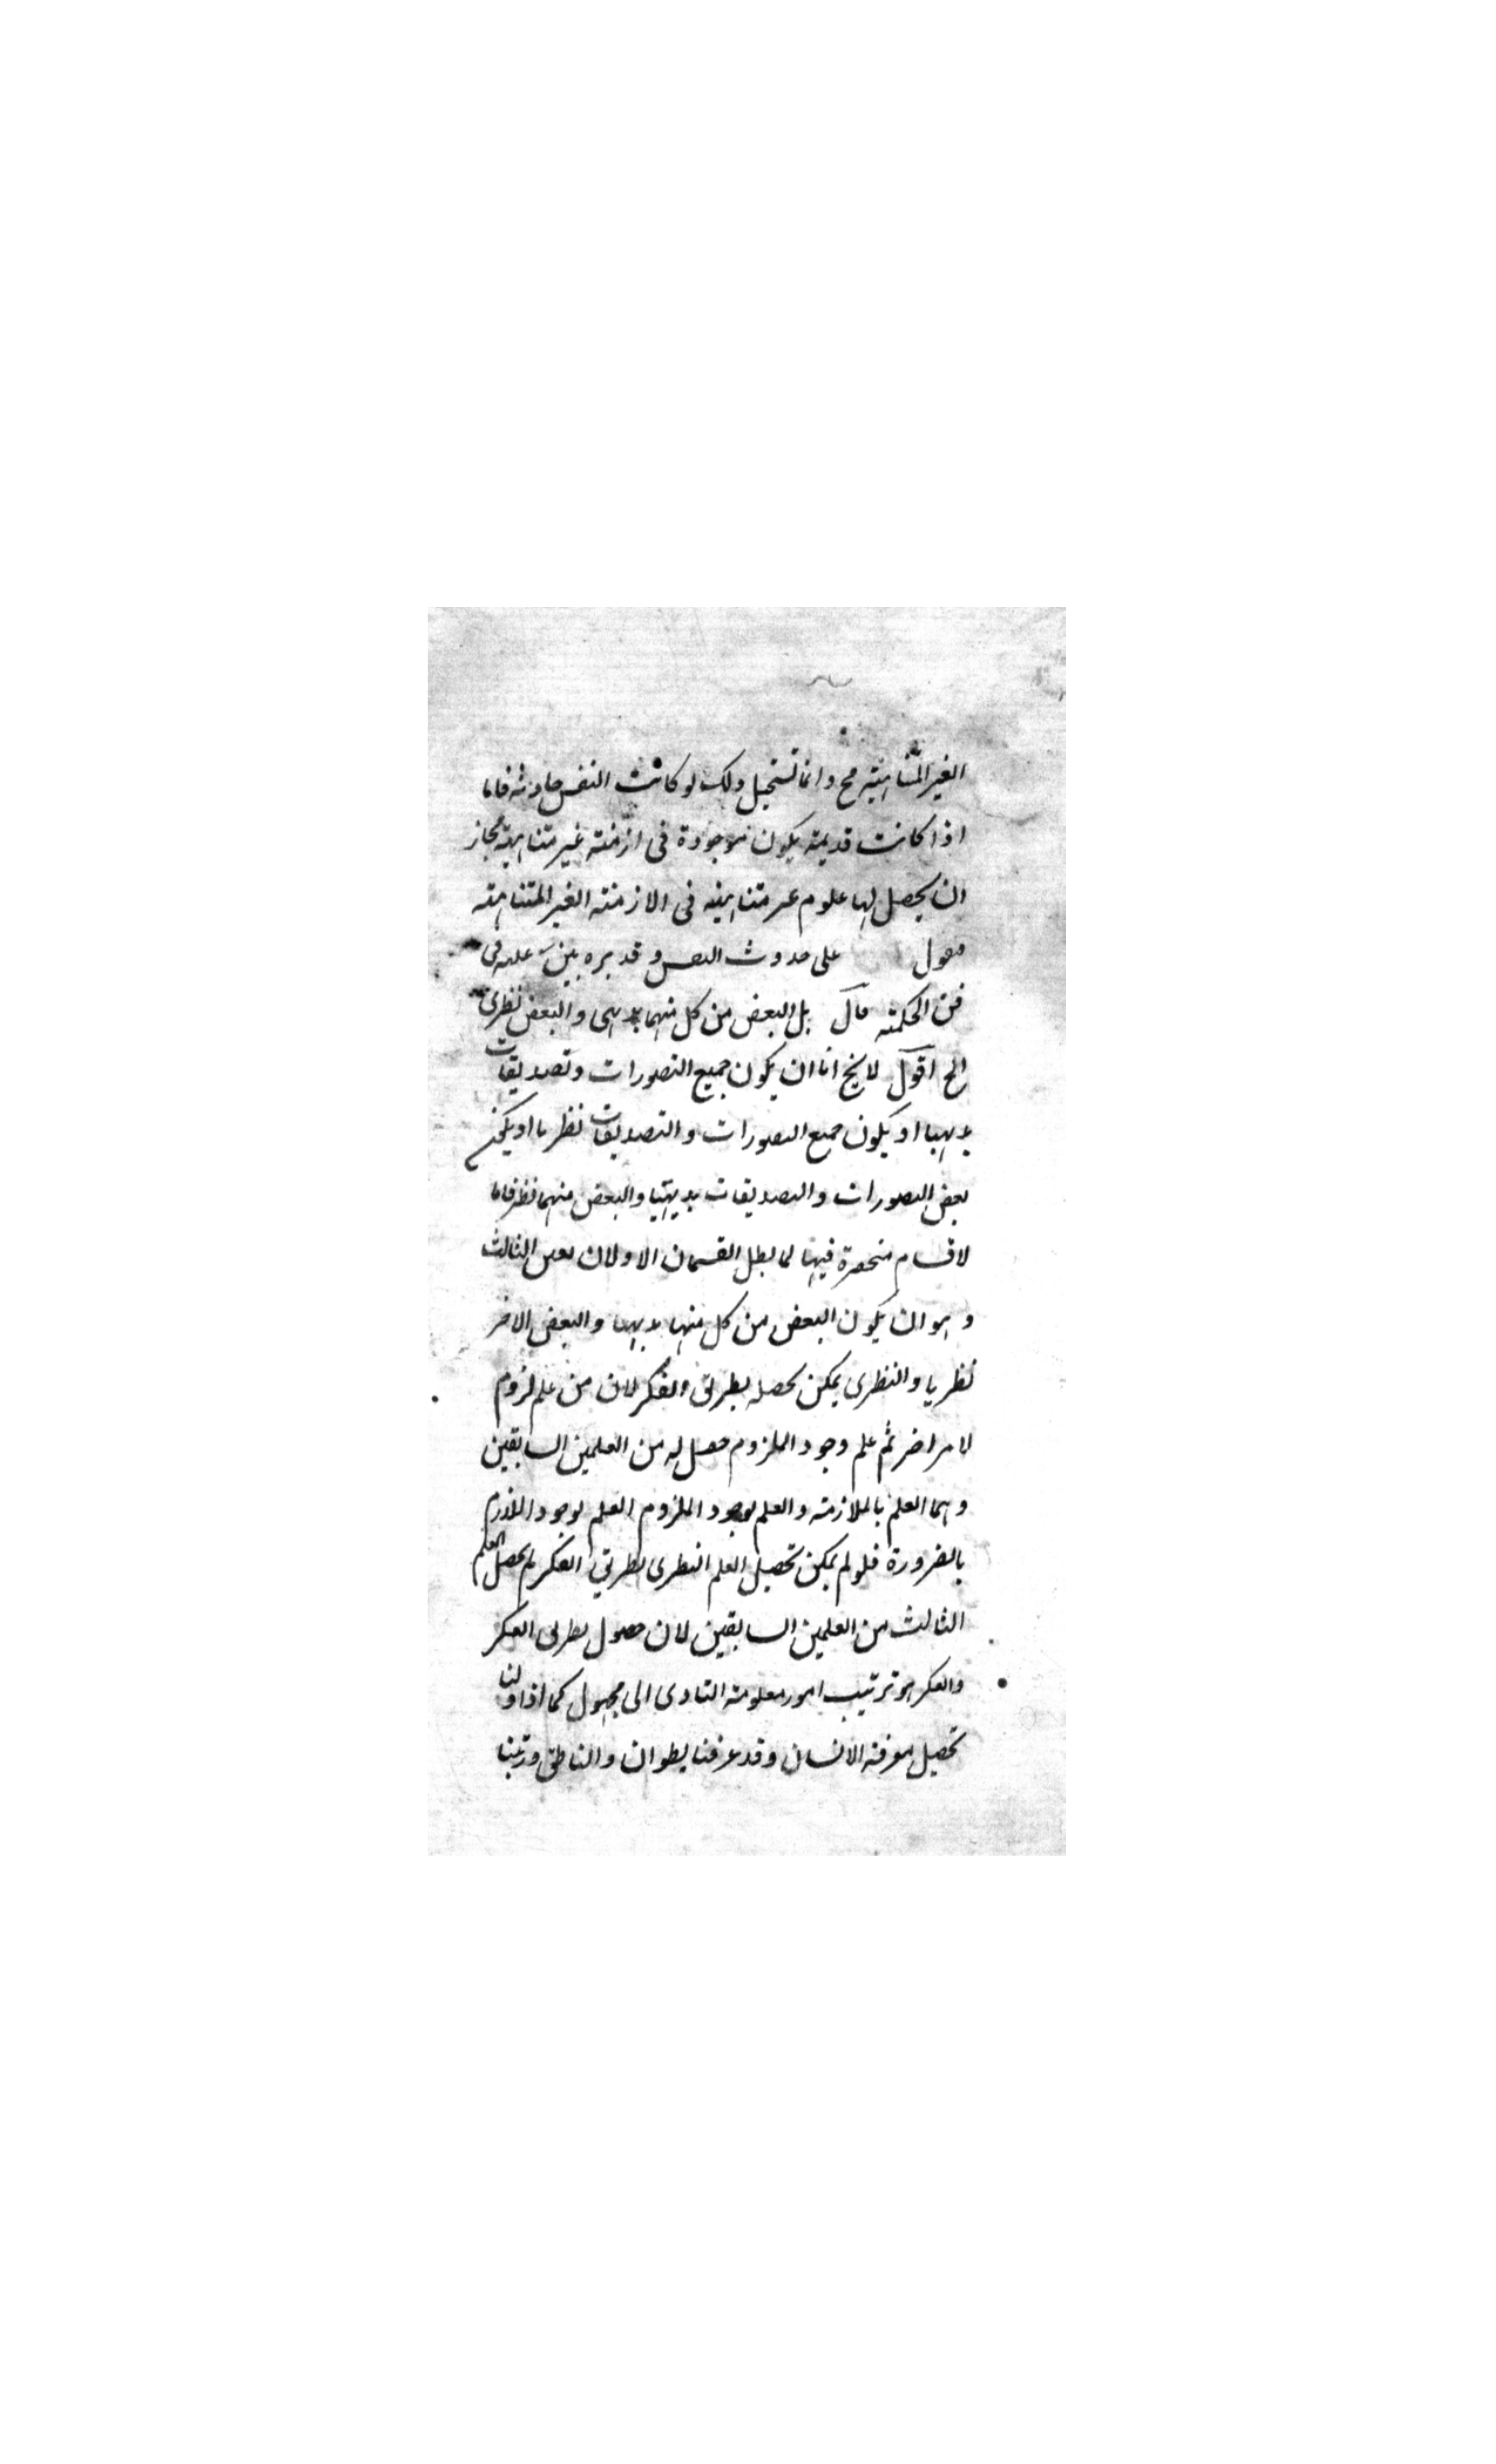 الغير المتناهية مح وانما تستحيل ذلك لو كانت النفس حادثة فاما
اذا كانت قديمة يكون موجودة فى ازمنة غير متناهية فجاز
ان يحصل لها علوم غير متناهية فى الازمنة الغير المتناهية
فنقول على حدوث النفس وقد برهن عليه فى
فن الحكمة قال بل البعض من كل منهما بديهى والبعض نظرى
الخ اقول لا يخ اما ان يكون جميع التصورات وتصديقات
بديهيا او يكون جميع التصورات والتصديقات نظريا او يكون
بعض التصورات والتصديقات بديهيا والبعض منهما نظر فاما
لاقسام منحصرة فيها لما بطل القسمان الاولان تعين الثالث
وهو ان يكون البعض من كل منها بديهيا والبعض الاخر
نظريا والنظرى يمكن تحصله بطريق الفكر لان من علم لزوم
لامر اخر ثم علم وجود الملزوم حصل له من العلمين السابقين
وهما العلم بالملازمة والعلم بوجود الملزوم العلم بوجود اللازم
بالضرورة فلو لم يمكن تحصيل العلم النظرى بطريق الفكر لم يحصل العلم
الثالث من العلمين السابقين لان حصول بطريق الفكر
والفكر هو ترتيب امور معلومة التادى الى مجهول كما اذا ولنا
تحصيل معرفة الانسان وقد عرفنا والناطق ورتبنا